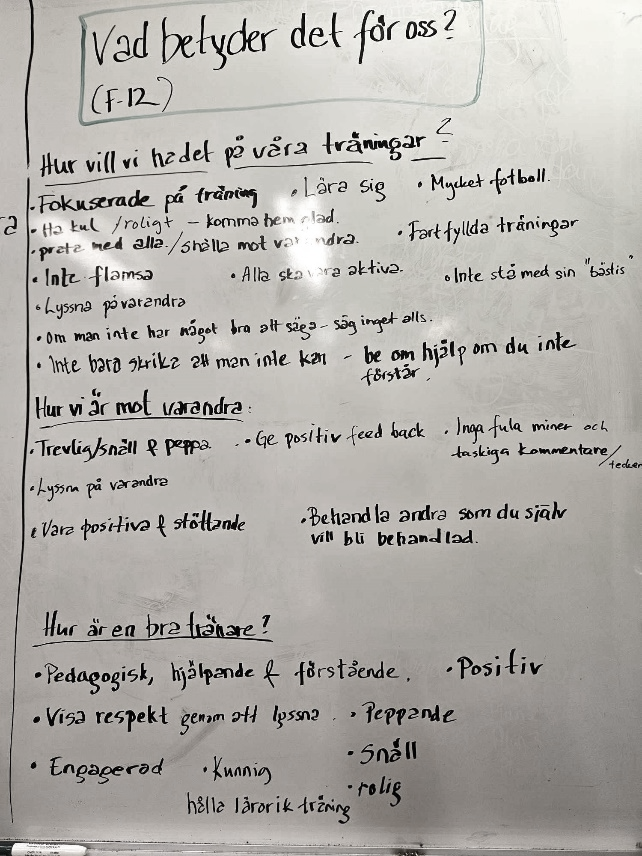 Vad betyder det för oss?
(F-12)
Hur vill vi ha det på våra träningar?
• Fokuserade på träning • Lära sig • Mycket fotboll.
• Ha kul /roligt – komma hem glad.
• prata med alla./snälla mot varandra. • Fartfyllda träningar
• Inte flamsa • Alla ska vara aktiva. • Inte stå med sin "bästis"
• Lyssna på varandra
• Om man inte har något bra att säga – säg inget alls.
• Inte bara skrika att man inte kan – be om hjälp om du inte
förstår.
Hur vi är mot varandra:
• Trevlig/snäll & peppa. • Ge positiv feed back • Inga fula miner och
taskiga kommentare/
• Lyssna på varandra
• Vara positiva & stöttande • Behandla andra som du själv
vill bli behandlad.
Hur är en bra tränare?
• Pedagogisk, hjälpande & förstående. • Positiv
• Visa respekt genom att lyssna. • Peppande
• Snäll
• Engagerad • Kunnig
• rolig
hålla lärorik träning